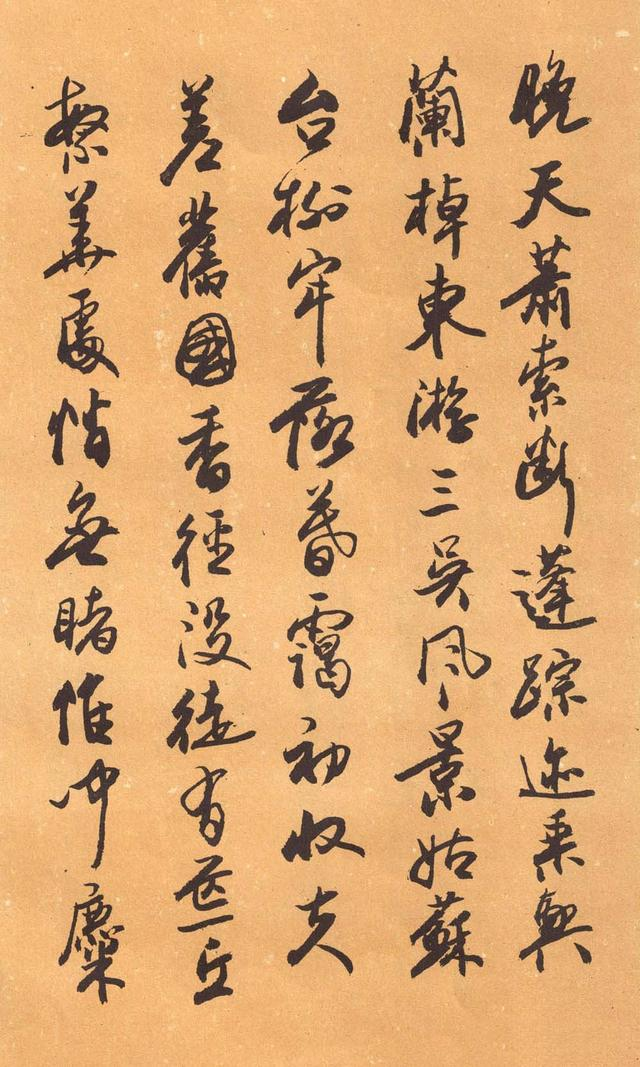 晚天蕭索断蓬踪迹乘興
蘭棹東游三吳風景姑蘇
台榭牢落暮靄初收夫
差舊國香徑没徒有荒丘
繁華處悄無睹惟聞麋